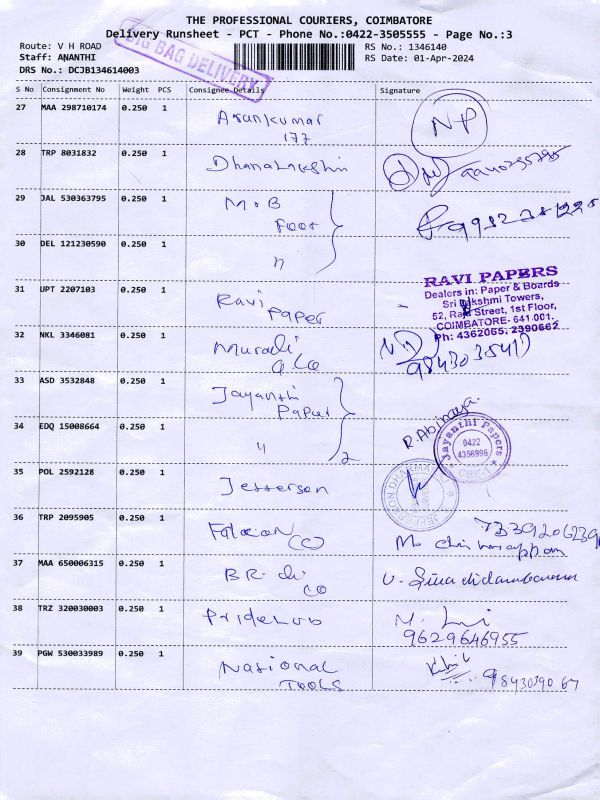 THE PROFESSIONAL COURIERS, COIMBATORE
Delivery Runsheet - PCT - Phone No.:0422-3505555 - Page No.:3
Route: V H ROAD
RS No.: 1346140
Staff: ANANTHI
RS Date: 01-Apr-2024
DRS No.: DCJB134614003
BIG BAG DELIVERY
S No Consignment No Weight PCS Consignee Details Signature
27 MAA 298710174 0.250 1 Arunkumar NP
177
28 TRP 8031832 0.250 1 Dhanalakshmi
29 JAL 530363795 0.250 1 M.B
Foor
30 DEL 121230590 0.250 1 "
31 UPT 2207103 0.250 1 Ravi
Paper
RAVI PAPERS
Dealers in: Paper & Boards
Sri Lakshmi Towers,
52, Raja Street, 1st Floor,
COIMBATORE-641 001.
Ph: 4362055, 2390662
32 NKL 3346081 0.250 1 Murali
& Co
9843035417
33 ASD 3532848 0.250 1 Jayanthi
Paper
2
R. Abinaya
34 EDQ 15008664 0.250 1 "
Jayanthi Papers
0422
4356996
CBE-1
35 POL 2592128 0.250 1 Jefferson
36 TRP 2095905 0.250 1 Falcon
CO
M. Chinnappan
37 MAA 650006315 0.250 1 CO
38 TRZ 320030003 0.250 1 Pridehub
9629646955
39 PGW 530033989 0.250 1 National
Tools